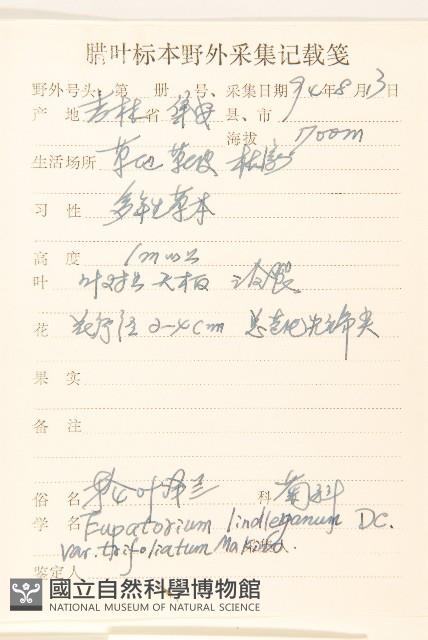 腊叶标本野外采集记载笺
野外号头: 第 册 3 号、采集日期 94年8月13日
产 地 吉林 省 集安 县、市
海拔 1700m
生活场所 草地 草坡
习 性 多年生草本
高 度 1m
叶 叶对生
花 2-4cm
果 实
备 注
俗 名 科 菊科
学 名 Eupatorium lindleyanum DC.
var. trifoliatum Makino.
鉴定人
國立自然科學博物館
NATIONAL MUSEUM OF NATURAL SCIENCE